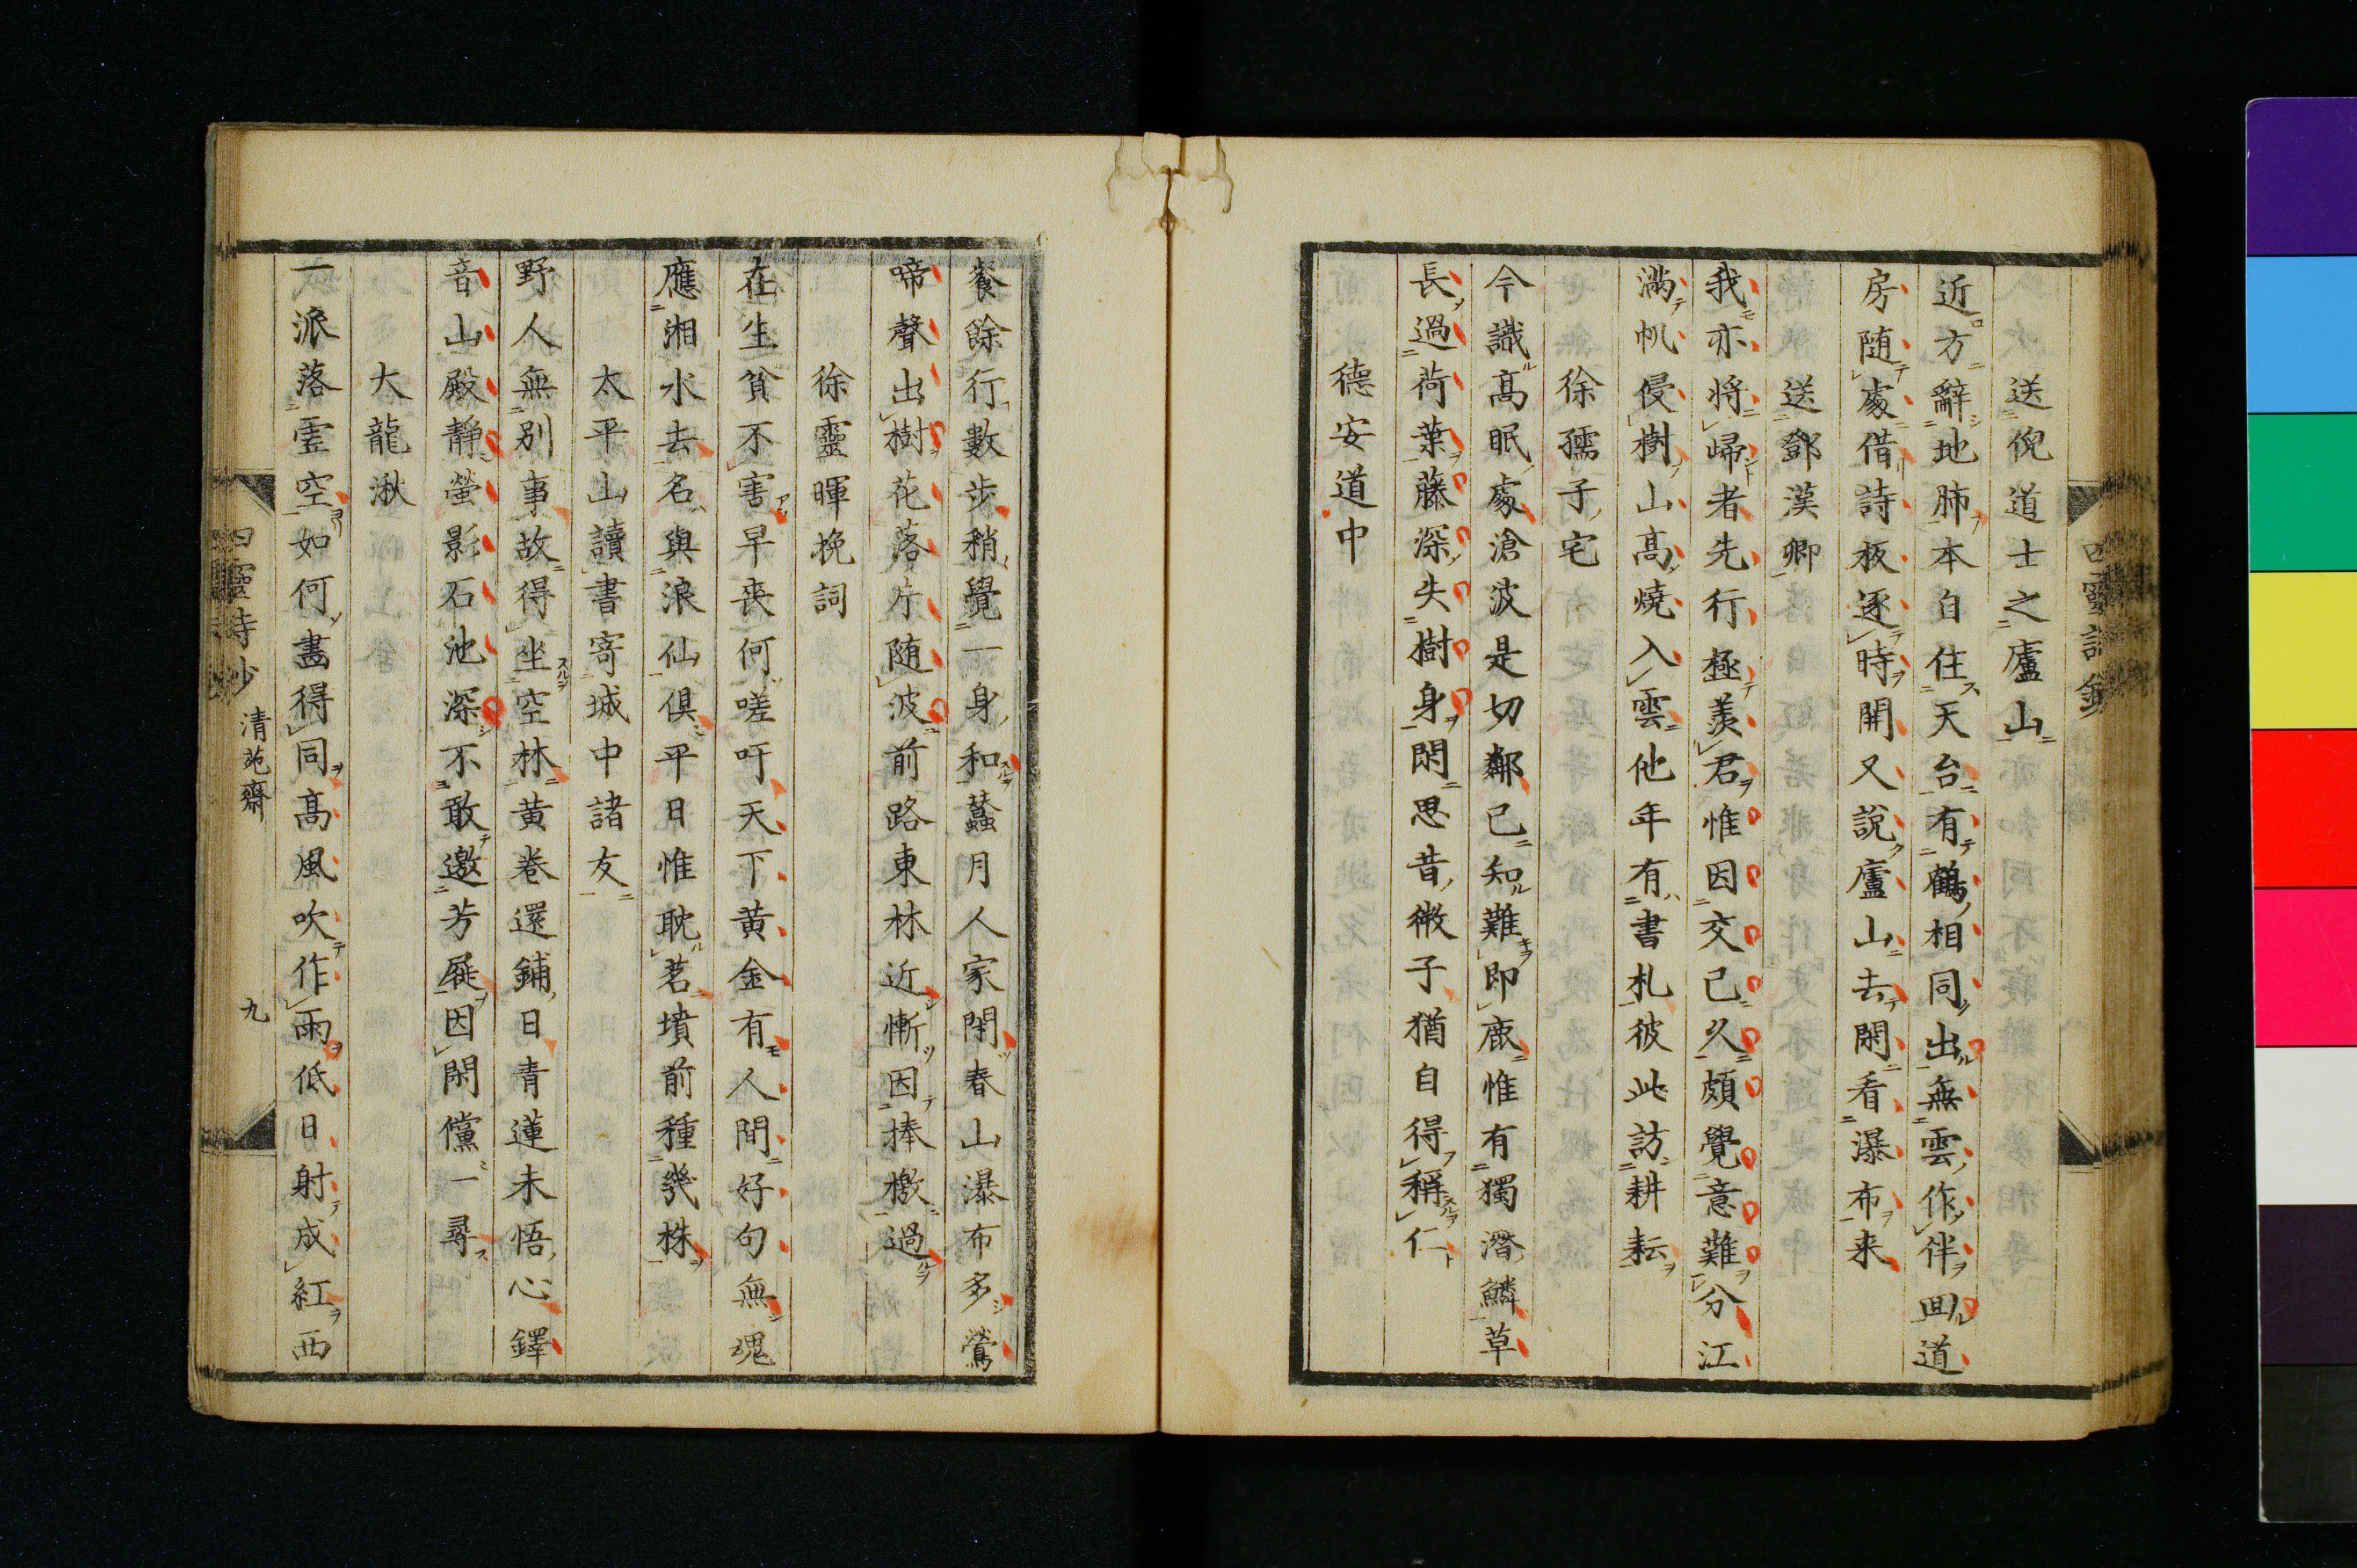 送倪道士之廬山
近方辭地肺本自住天台有鶴相同出無雲作伴回道
房随處借詩板逐時開又說廬山去閑看瀑布来
送鄧漢卿
我亦将歸者先行極羨君惟因交已久頗覺意難分江
滿帆侵樹山髙燒入雲他年有書札彼此訪耕耘
徐孺子宅
今識髙眠處滄波是切鄰已知難即鹿惟有獨潛鱗草
長過荷葉藤深失樹身閑思昔微子猶自得稱仁
德安道中
餐餘行數步稍覺一身和蠶月人家閑春山瀑布多鶯
啼聲出樹花落片随波前路東林近慚因捧檄過
徐靈暉挽詞
在生貧不害早丧何嗟吁天下黄金有人間好句無魂
應湘水去名與浪仙俱平日惟耽茗墳前種幾株
太平山讀書寄城中諸友
野人無别事故得坐空林黄卷還鋪日青蓮未悟心鐸
音山殿靜螢影石池深不敢邀芳屐因閑儻一尋
大龍湫
一派落雲空如何畫得同髙風吹作雨低日射成紅西
四靈詩鈔
四靈詩鈔 清苑齋 九